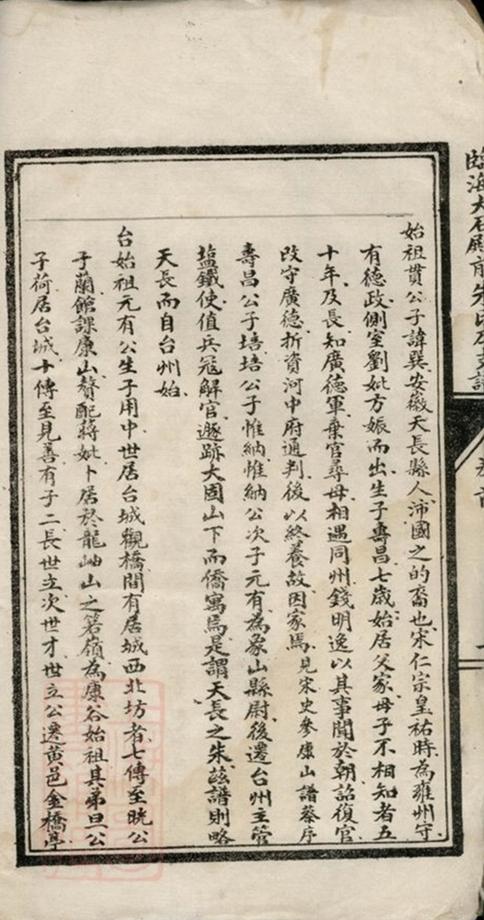 始祖貫公子諱巽安徽天長縣人沛國之的裔也宋仁宗皇祐時為雍州守
有德政側室劉妣方娠而出生子壽昌七歲始居父家母子不相知者五
十年及長知廣德軍棄官尋母相遇同州錢明逸以其事聞於朝詔復官
改守廣德折資河中府通判後以終養故因家焉見宋史參康山譜蔡序
壽昌公子培培公子惟納惟納公次子元有為象山縣尉後遷台州主管
塩鐵使值兵冦解官遯跡大固山下而僑寓焉是謂天長之朱茲譜則略
天長而自台州始
台始祖元有公生子用中世居台城觀橋間有居城西北坊者七傳至晄公
子蘭館課康山贅配蔣妣卜居於龍岫山之箬嶺為康谷始祖其弟旦公
子荷居台城十傳至見善有子二長世立次世才世立公遷黃邑金橋亭
臨海大石殿前朱氏
卷首